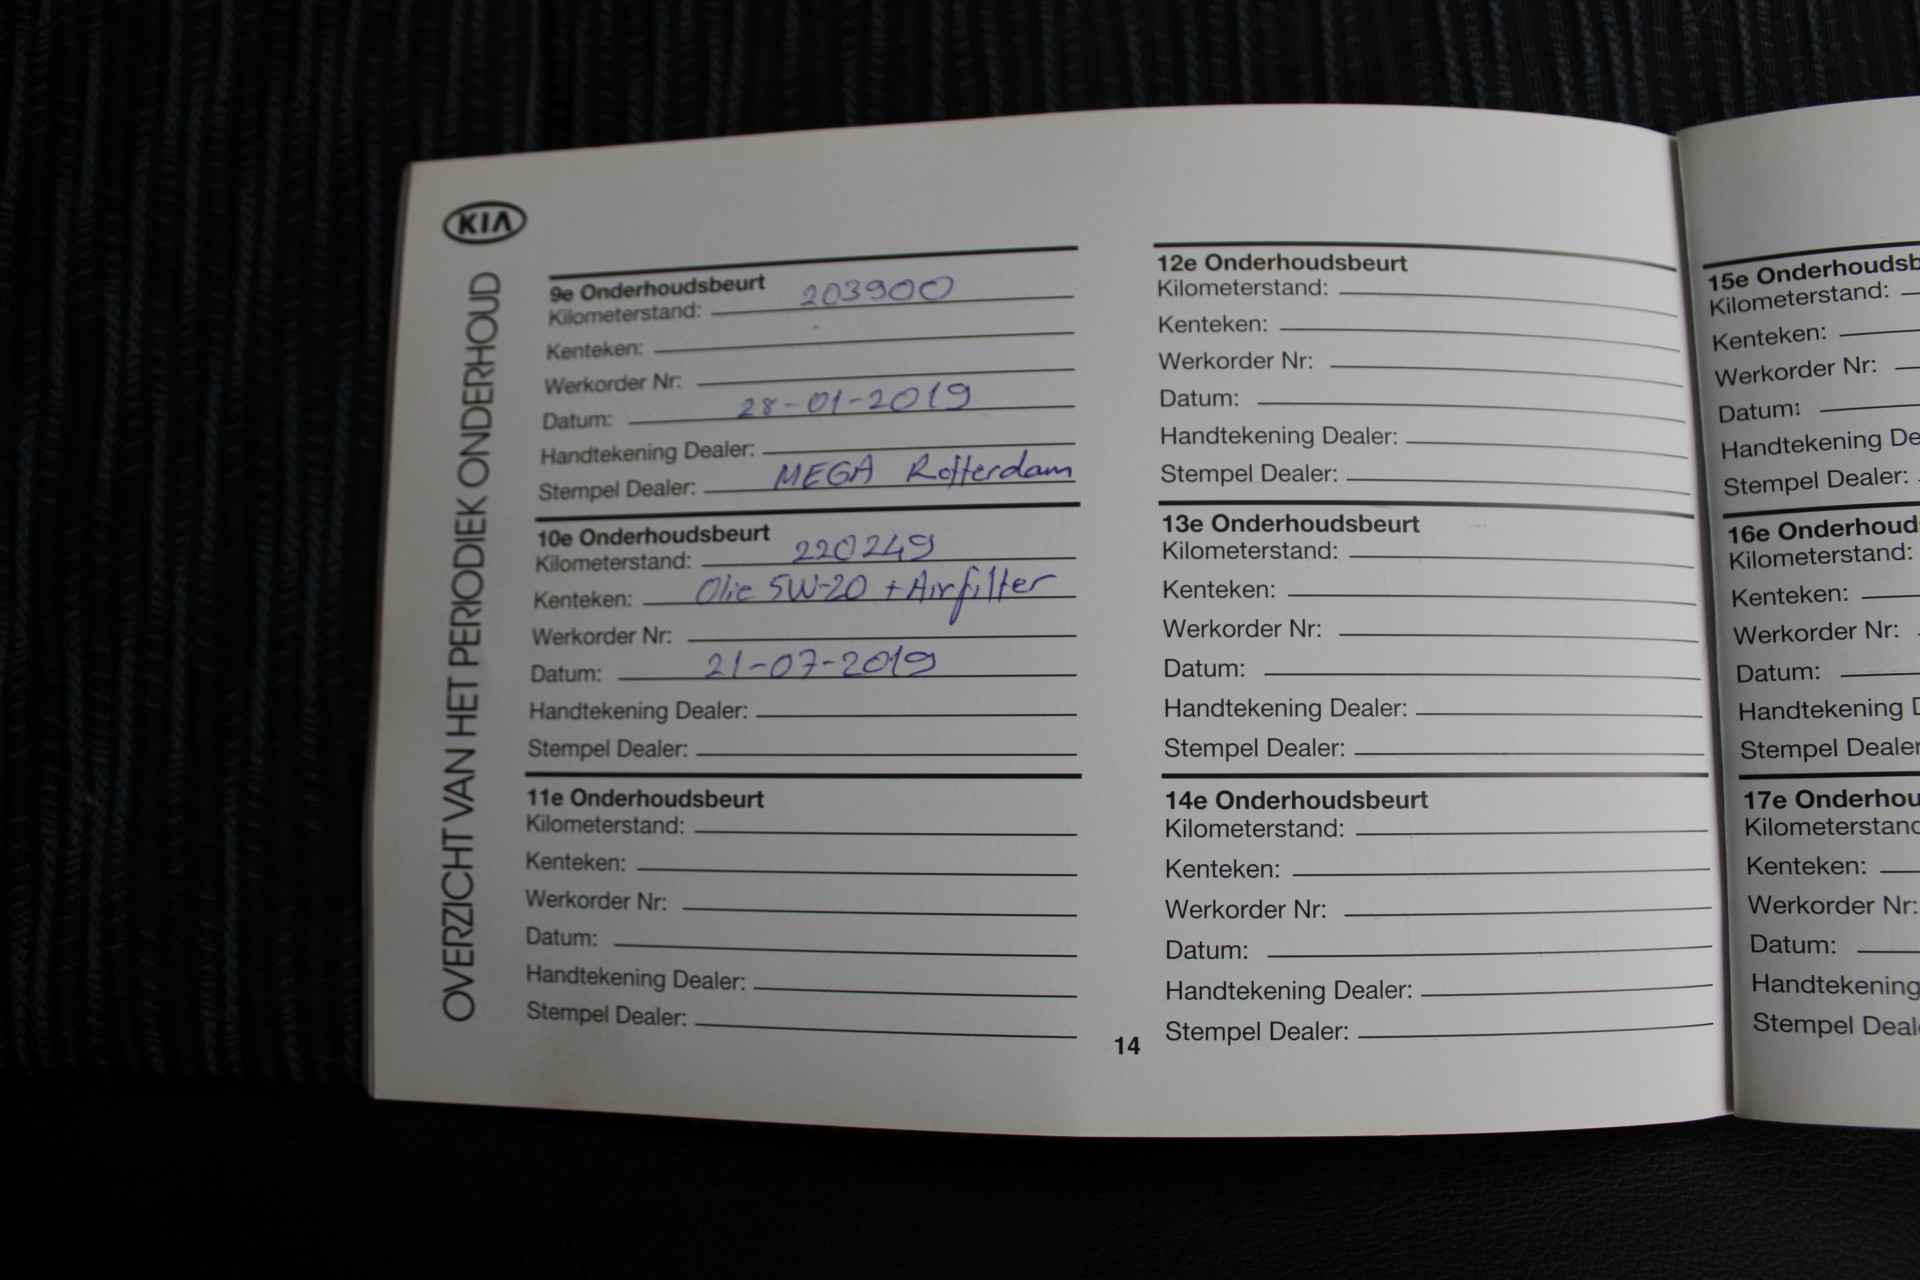 KIA
OVERZICHT VAN HET PERIODIEK ONDERHOUD
9e Onderhoudsbeurt
Kilometerstand: 203900
Kenteken:
Werkorder Nr:
Datum: 28-01-2019
Handtekening Dealer:
Stempel Dealer: MEGA Rotterdam
10e Onderhoudsbeurt
Kilometerstand: 220249
Kenteken: Olie 5W-20 + Airfilter
Werkorder Nr:
Datum: 21-07-2019
Handtekening Dealer:
Stempel Dealer:
11e Onderhoudsbeurt
Kilometerstand:
Kenteken:
Werkorder Nr:
Datum:
Handtekening Dealer:
Stempel Dealer:
12e Onderhoudsbeurt
Kilometerstand:
Kenteken:
Werkorder Nr:
Datum:
Handtekening Dealer:
Stempel Dealer:
13e Onderhoudsbeurt
Kilometerstand:
Kenteken:
Werkorder Nr:
Datum:
Handtekening Dealer:
Stempel Dealer:
14e Onderhoudsbeurt
Kilometerstand:
Kenteken:
Werkorder Nr:
Datum:
Handtekening Dealer:
Stempel Dealer:
14
15e Onderhoudsb
Kilometerstand:
Kenteken:
Werkorder Nr:
Datum:
Handtekening De
Stempel Dealer:
16e Onderhoud
Kilometerstand:
Kenteken:
Werkorder Nr:
Datum:
Handtekening D
Stempel Dealer
17e Onderhou
Kilometerstand
Kenteken:
Werkorder Nr:
Datum:
Handtekening
Stempel Deal